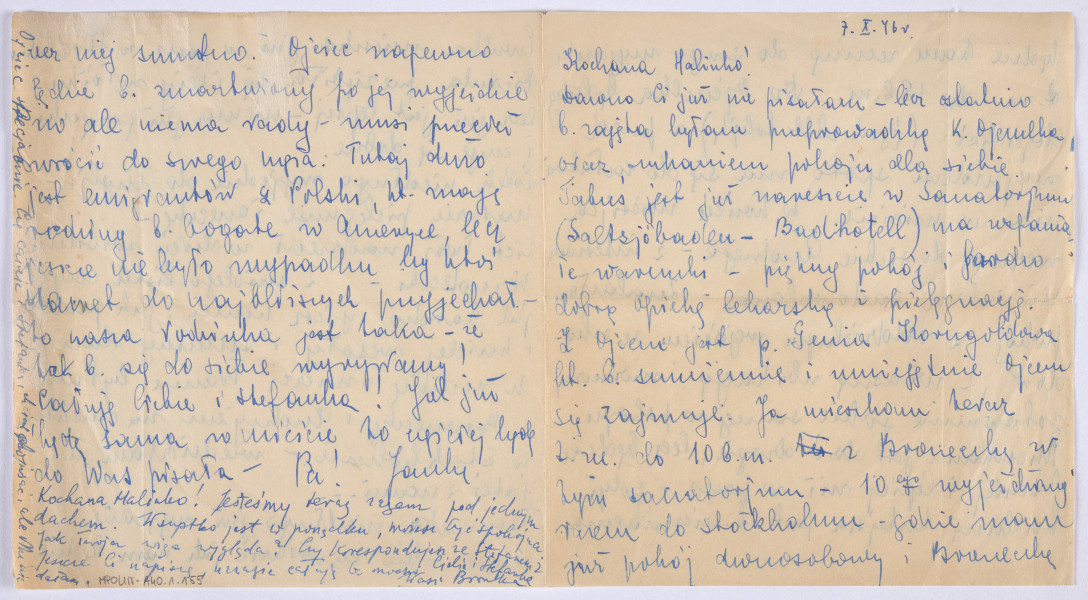 7. X. 46 r.
Kochana Halinko!
Dawno Ci już nie pisałam – lecz ostatnio
b. zajęta byłam przeprowadzką K. Ojczulka,
oraz szukaniem pokoju dla siebie.
Tatuś jest już nareszcie w Sanatorjum
(Saltsjöbaden – Badhotell) ma wspania-
łe warunki – piękny pokój i bardzo
dobrą opiekę lekarską i pielęgnację.
Z Ojcem jest p. Genia Korngoldowa
kt. b. sumiennie i umiejętnie Ojcem
się zajmuje. Ja mieszkam teraz
t. zn. do 10 b.m. z Bronechą w
tym sanatorjum – 10ego wyjeżdżamy
razem do Stockholmu – gdzie mam
już pokój dwuosobowy i Bronechę
bez niej smutno. Ojciec napewno
będzie b. zmartwiony po jej wyjeździe
no ale niema rady – musi przecież
wrócić do swego męża. Tutaj dużo
jest emigrantów z Polski kt. mają
rodziny b. bogate w Ameryce, lecz
jeszcze nie było wypadku by ktoś
nawet do najbliższych przyjechał –
to nasza rodzinka jest taka – że
tak b. się do siebie wyrywamy
Całuję Ciebie i Stefanka! Jak już
będę sama w mieście to więcej będę
do Was pisała – Pa! Janka.
Kochana Halinko! Jesteśmy teraz razem pod jednym
dachem. Wszystko jest w porządku, możesz być spokojna.
Jak twoja noga wygląda? Czy korespondujesz ze Stefanem?
Jeszcze Ci napiszę, narazie całuję b. mocno Ciebie i Stefanka
Wasza Bronka
MPOLIN-A40.1.155
Ojciec specjalnie